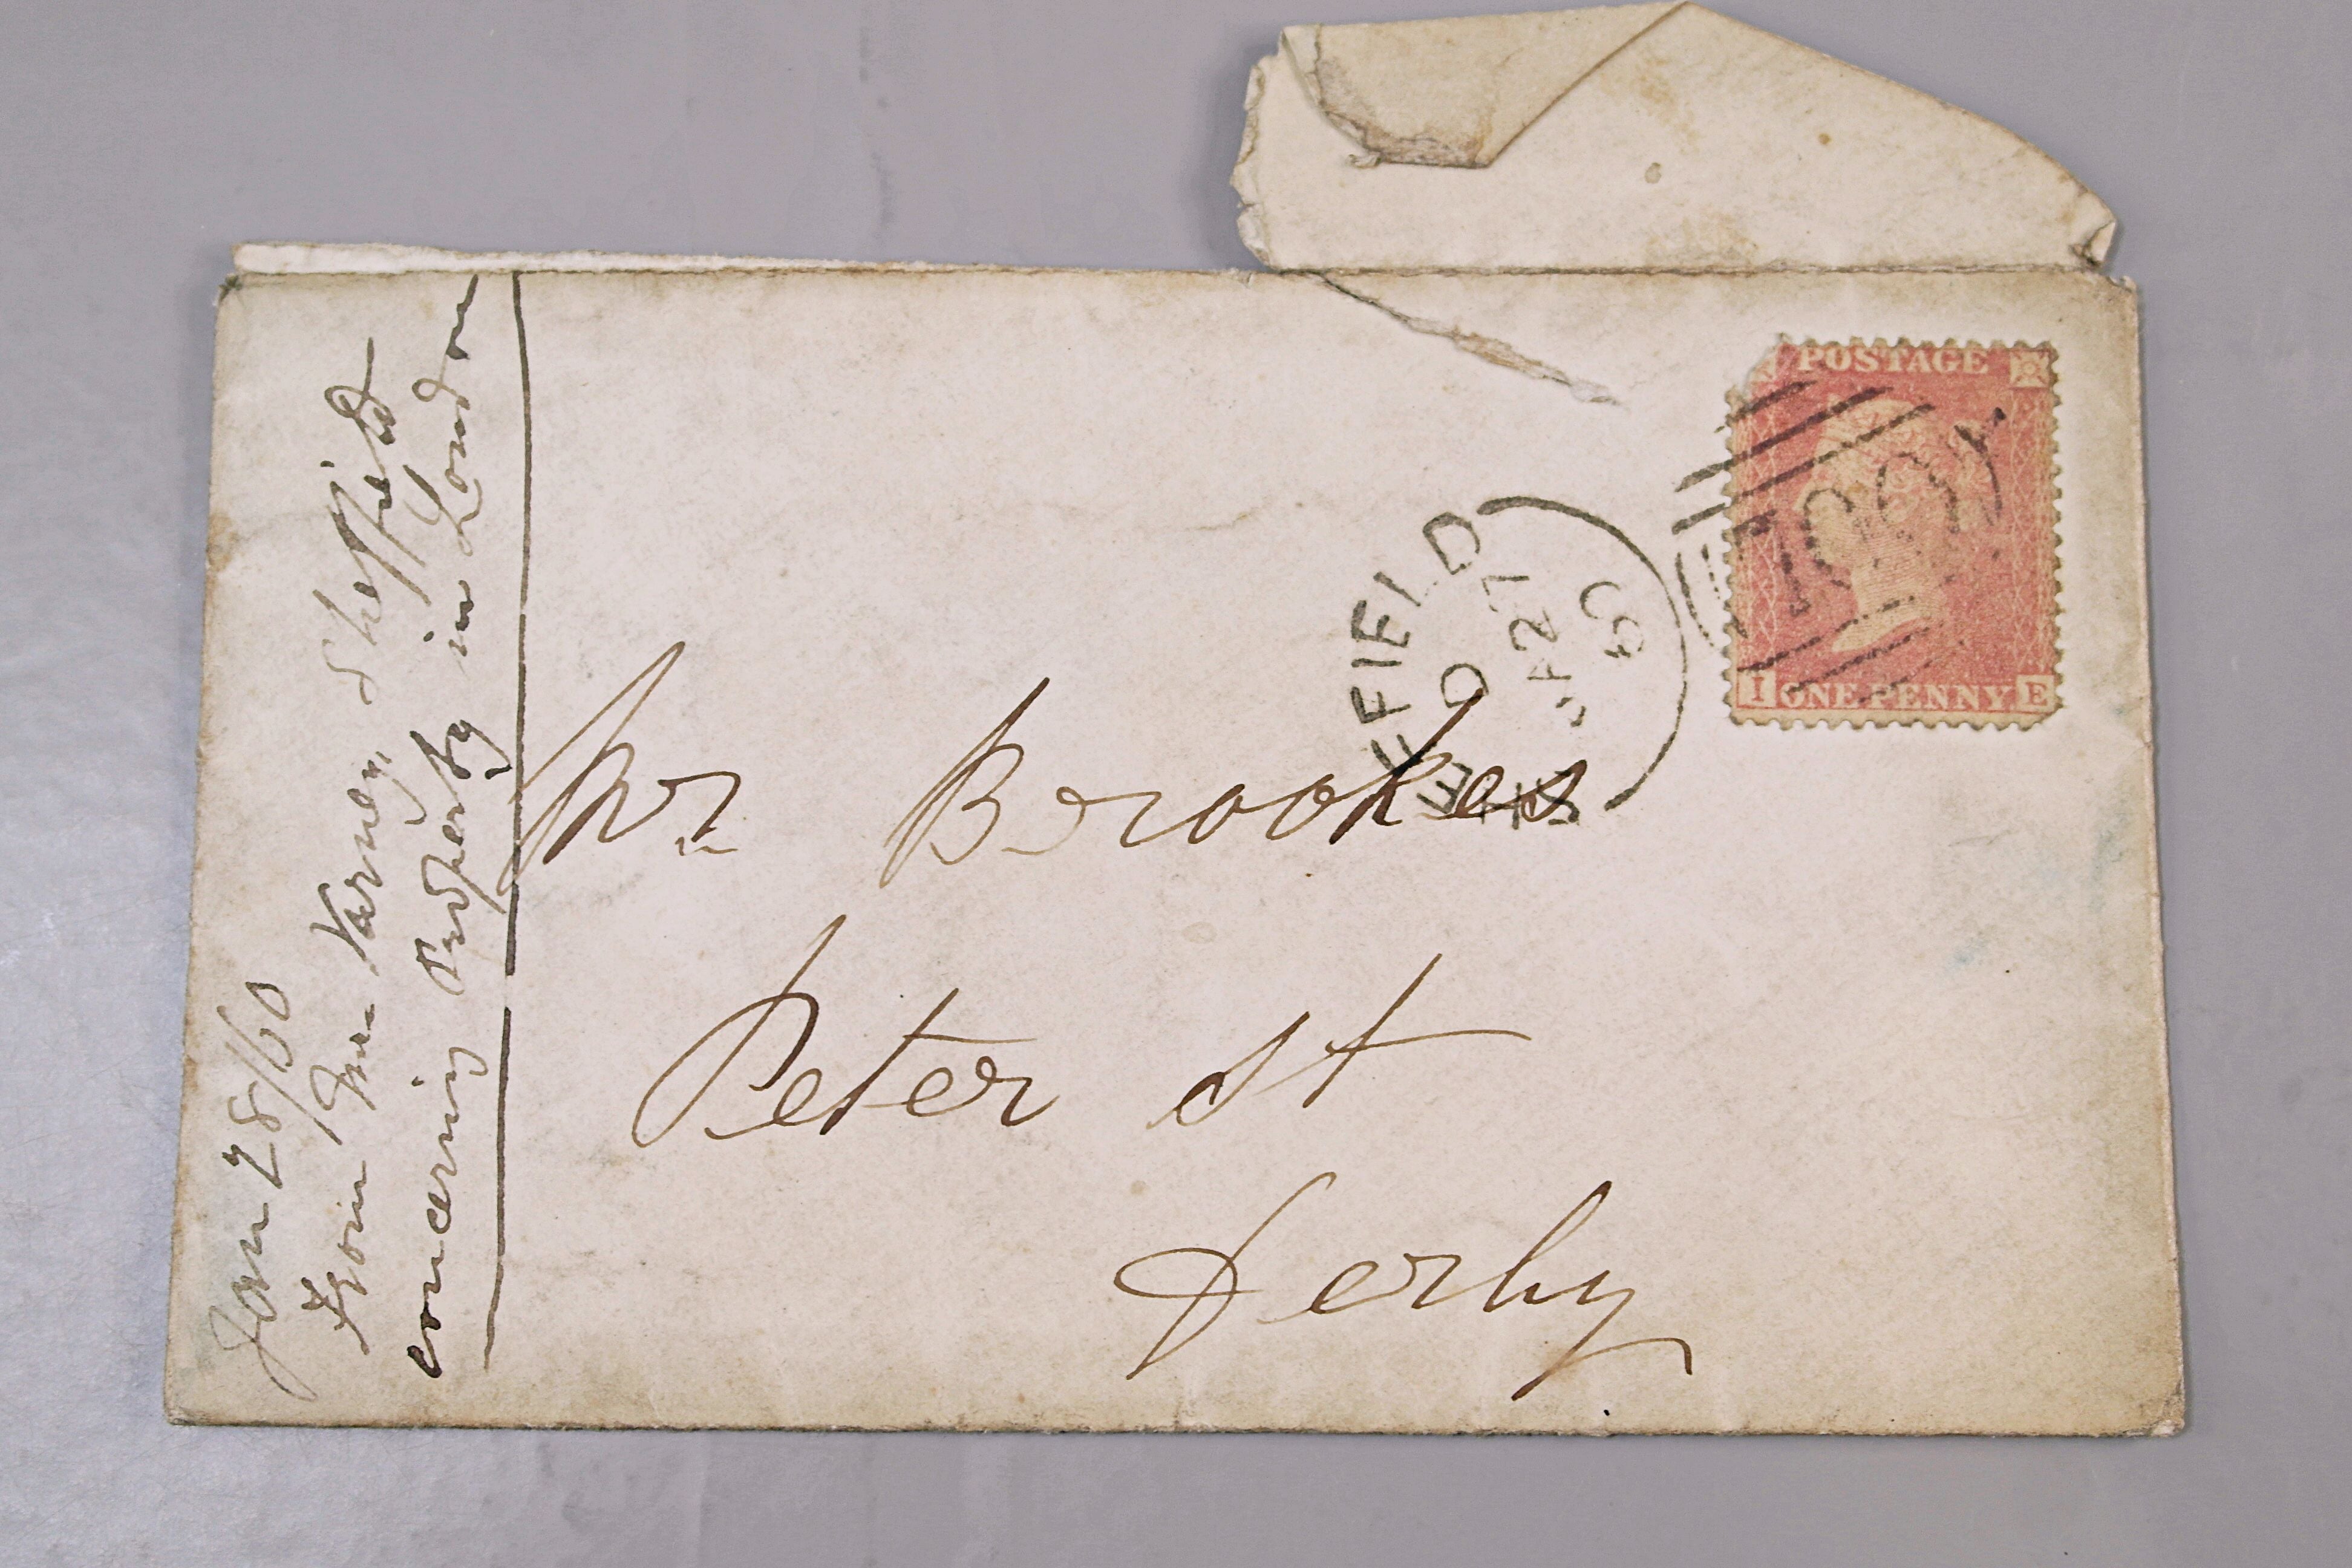 Jan 28/60
From Mr Varney, Sheffield
concerning Property in London
Mr Brookes
Peter St
Derby
SHEFFIELD
D
JA 27
60
POSTAGE
700
I ONE PENNY E